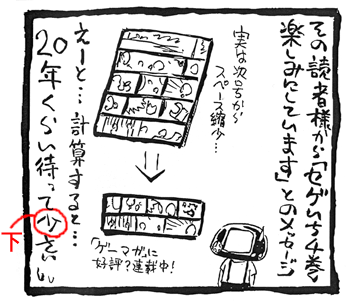 その読者様から「セゲいち4巻
楽しみにしています」とのメッセージ
実は次号から
スペース縮少…
「ゲーマガ」に
好評?連載中!
えーと…計算すると…
20年くらい待って少さい。
下